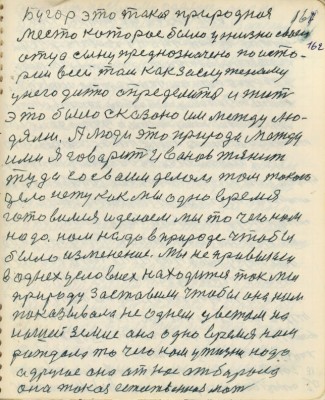 Бугор это такая природная 161
место которое было у жизни своей 162
отцу сыну предназначено по исто-
рии всей там как заслуженому
у него дито определиться и жит
это было сказано им между лю-
дями, А люди это природа между
ими Я говорит Иванов тянит
туда со своим делом там такого
дело нету как мы одно время
готовимся и делаем мы то чего нам
надо. нам надо в природе чтобы
было изменение. Мы не привыкли
в однех условиех находится так мы
природу заставили чтобы она нам
показывала не однем цветом на
нашей земле она одно время нам
рождала то чего нам у жизни надо
а другое она от нас отбирала
она такая естественная мат